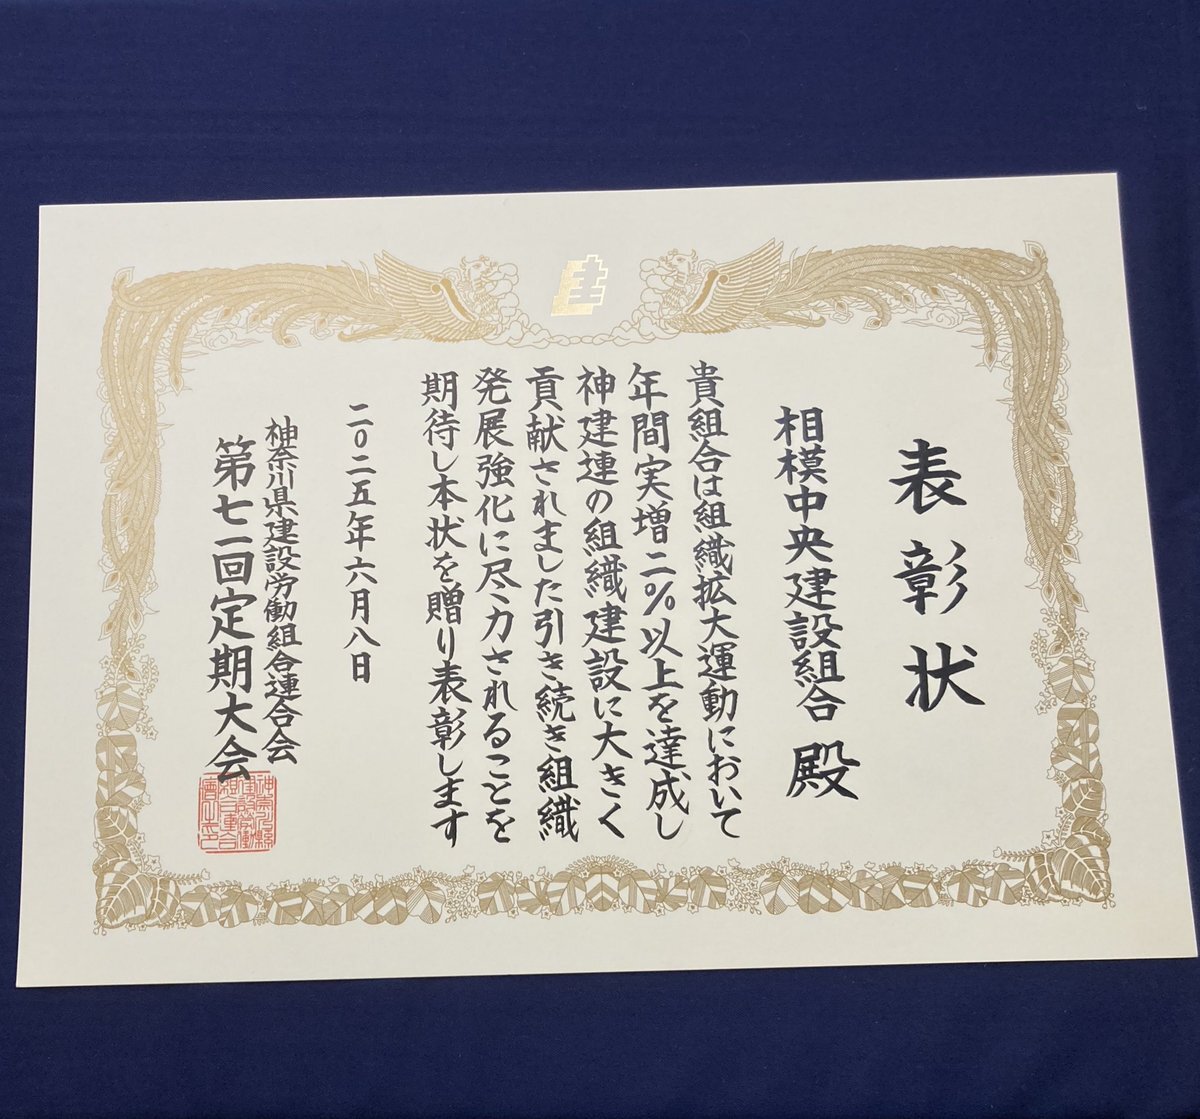 表彰状
相模中央建設組合 殿
貴組合は組織拡大運動において
年間実増二%以上を達成し
神建連の組織建設に大きく
貢献されました引き続き組織
発展強化に尽力されることを
期待し本状を贈り表彰します
二〇二五年六月八日
神奈川県建設労働組合連合会
第七一回定期大会